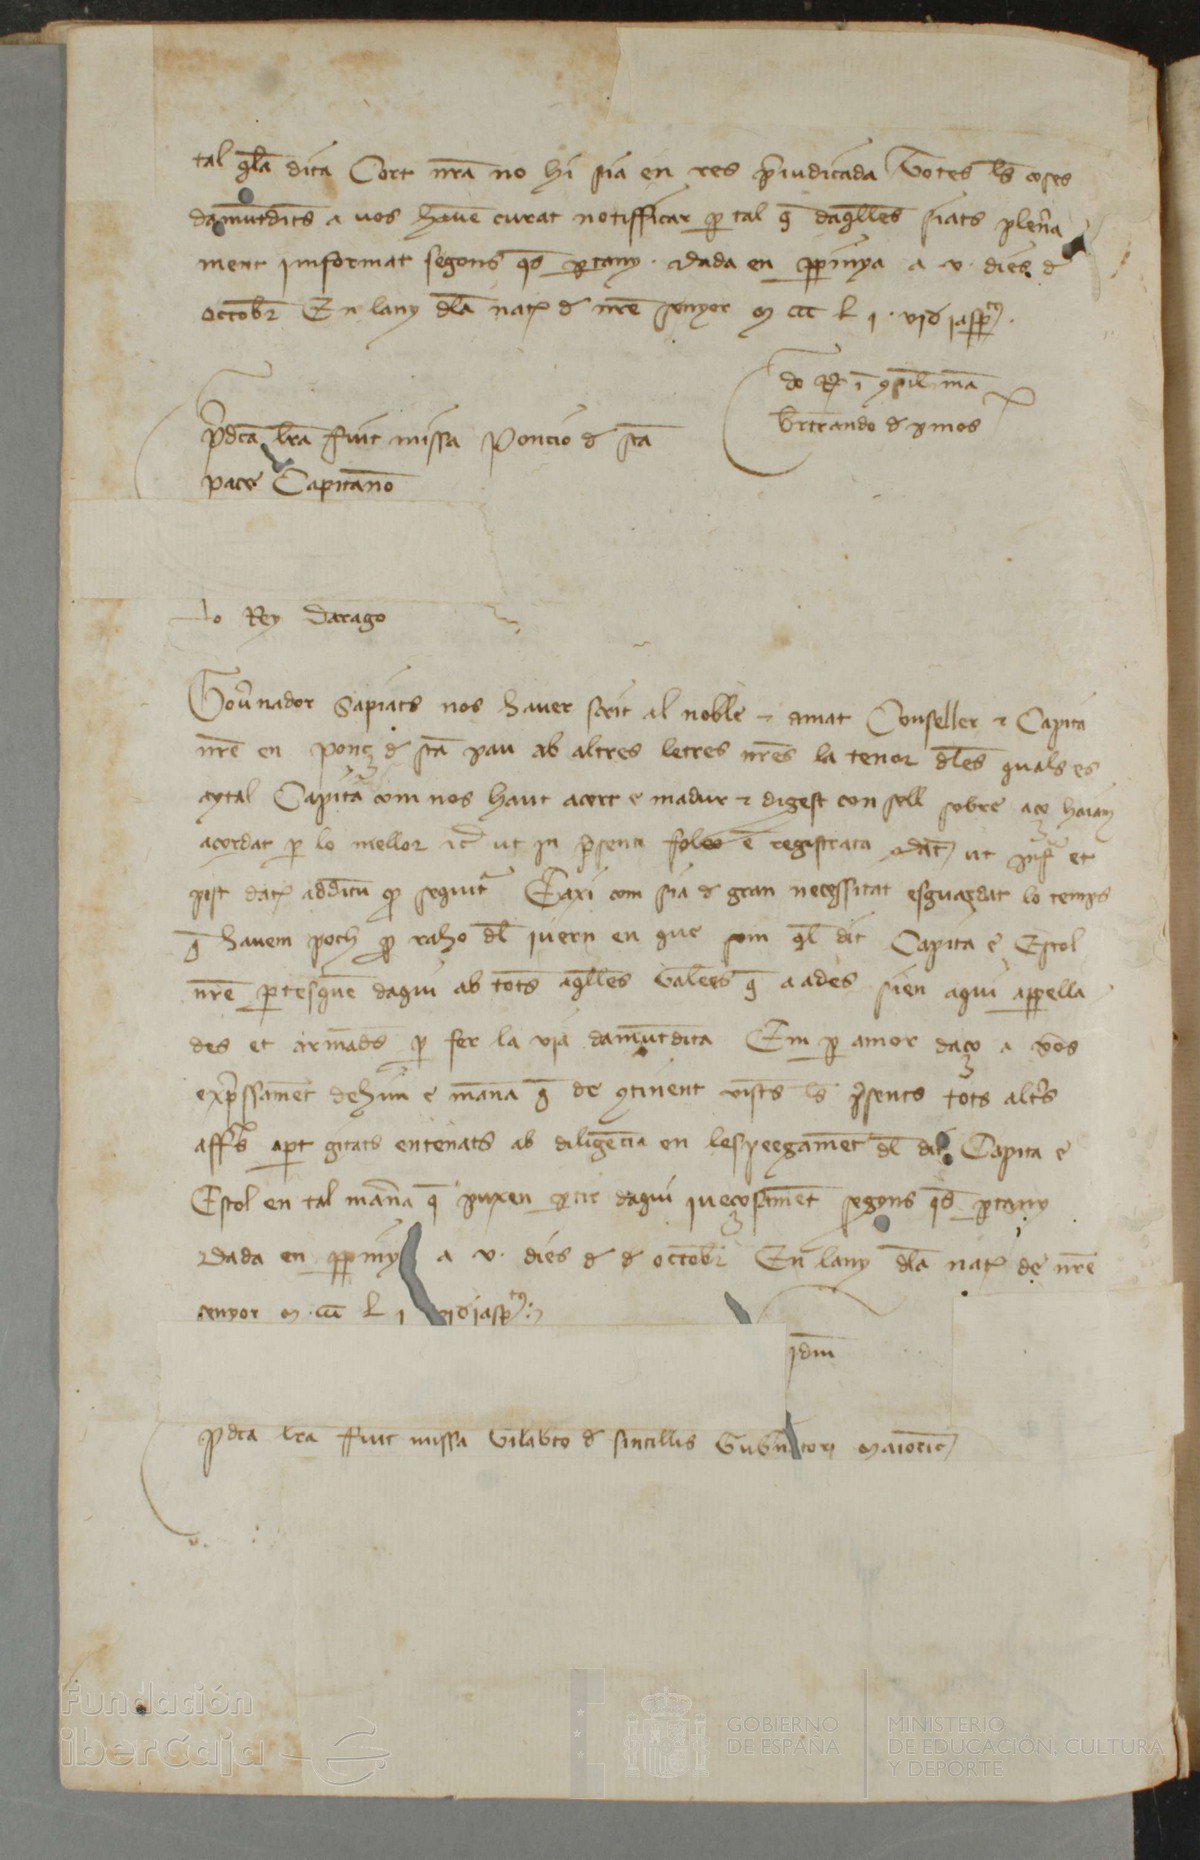 tal q̄la dita Cort nr̄a no hi sia en res p̄iudicada Totes l̄s coses
damūtdit̄s a vos havē curat notifficar p̱ tal q̄ daq̄lles siats plen̄a
ment imformat segons q̄s p̱tany. Dada en p̱pinya a v. dies d
octōbr En lany dl̄a nat̄ d nr̄e senyor M CCC L I.
p̄dca lr̄a fuit missa Poncio d sc̄a
pace Capitan̄o
br̄trando d pinos
lo Rey Darago
Gov̄nador Sapiats nos haver scrit al noble ⁊ amat Conseller ⁊ Capita
nr̄e en ponç d sc̄a pau ab altres letres nr̄es la tenor dl̄es quals es
aytal Capita com nos haut acort e madur ⁊ digest consell sobre aço haiam
acordat p̱ lo mellor ut in p̄senti folio ē registrata ut et
post dat̄ additū sequit̄ E axi com sia d gran necessitat esguardat lo temps
q̄ havem poch p̱ raho dl̄ ivern en que som q̄l dit Capita e Estol
nr̄e p̱tesquē daqui ab tot̄s aq̄lles q̄ a ades sien aqui appella
des et armad̄s p̱ fer la via damūtdita Em p̱ amor daço a v̄os
exp̄ssamēt dehim e manā q̄ de ꝯtinent vist̄s l̄s p̄sents tots alt̄s
aff̄s apt̄ gitats entenats ab diligēcia en lespeegamēt dl̄ dit Capita e
Estol en tal man̄a q̄ puxen p̱tir daqui segons q̄s p̱tany
Dada en p̱piny a v. dies d d octōbr En lany dl̄a nat̄ de nr̄e
senyor M. CCC L I
idm̄
p̄dca lr̄a fuit missa Gilab̄to d sintillis Gub̄n tori Maioric̄
fundación
iberCaja
GOBIERNO
DE ESPAÑA
MINISTERIO
DE EDUCACIÓN, CULTURA
Y DEPORTE